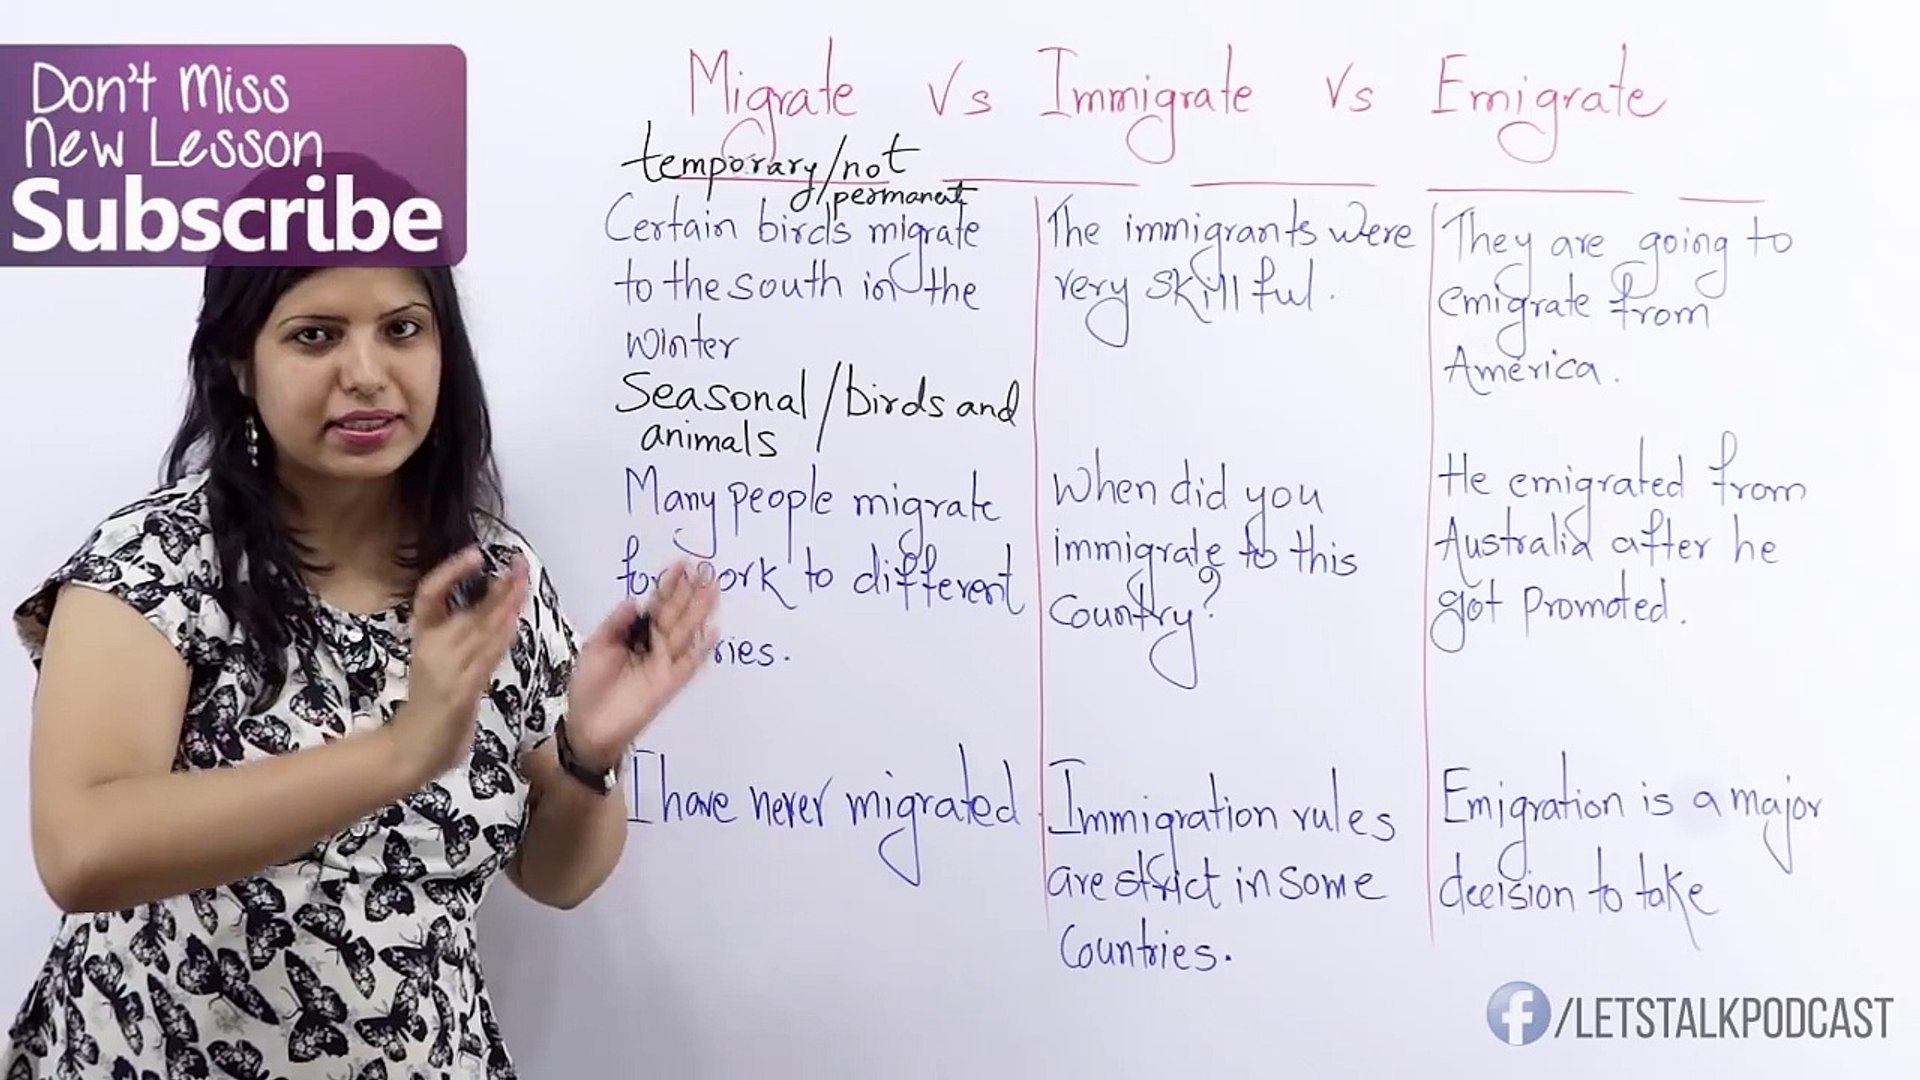 Don't Miss
New Lesson
Subscribe
Migrate Vs Immigrate Vs Emigrate
temporary/not
/permanent
Certain birds migrate
to the south in the
winter
Seasonal/birds and
animals
Many people migrate
for work to different
ries.
I have never migrated
The immigrants were
very skillful.
When did you
immigrate to this
Country?
Immigration rules
are strict in some
Countries.
They are going to
emigrate from
America.
He emigrated from
Australia after he
got promoted.
Emigration is a major
decision to take
f/LETSTALKPODCAST